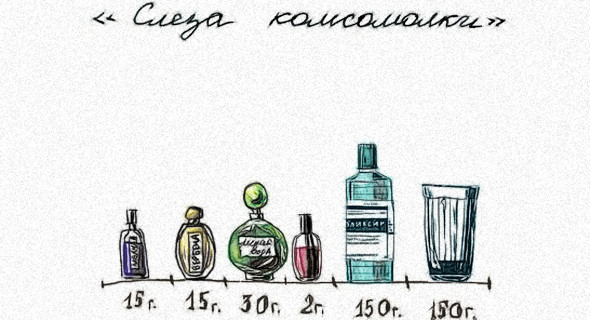 « Слеза комсомолки»
Лаванда
Вербена
Лесная вода
Эликсир
15г. 15г. 30г. 2г. 150г. 150г.